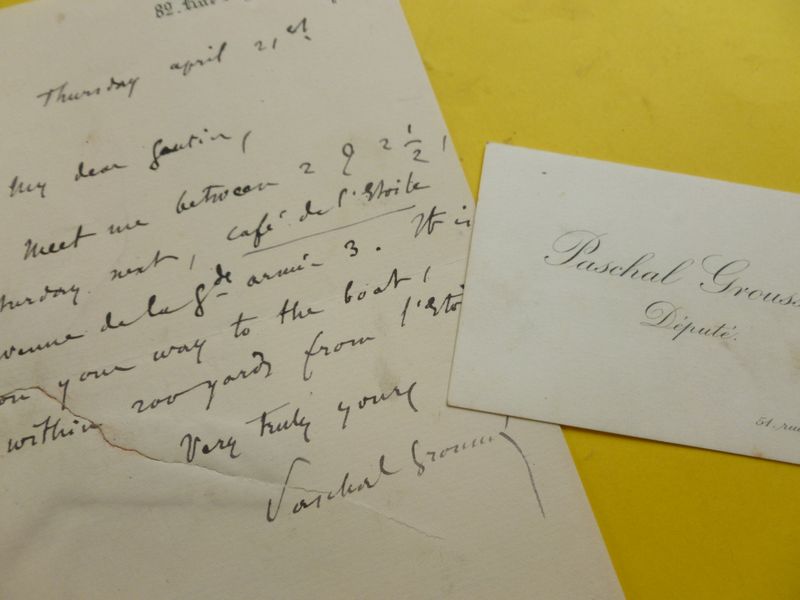 82. Rue
Thursday april 21st.
My dear Gautin,
Meet me between 2 & 2 1/2,
turday next, café de l'Etoile
venue de la Gde armée 3. It is
on your way to the boat,
within 200 yards from l'Etoi
Very truly yours
Paschal Grousset
Paschal Grouss
Député.
51, rue